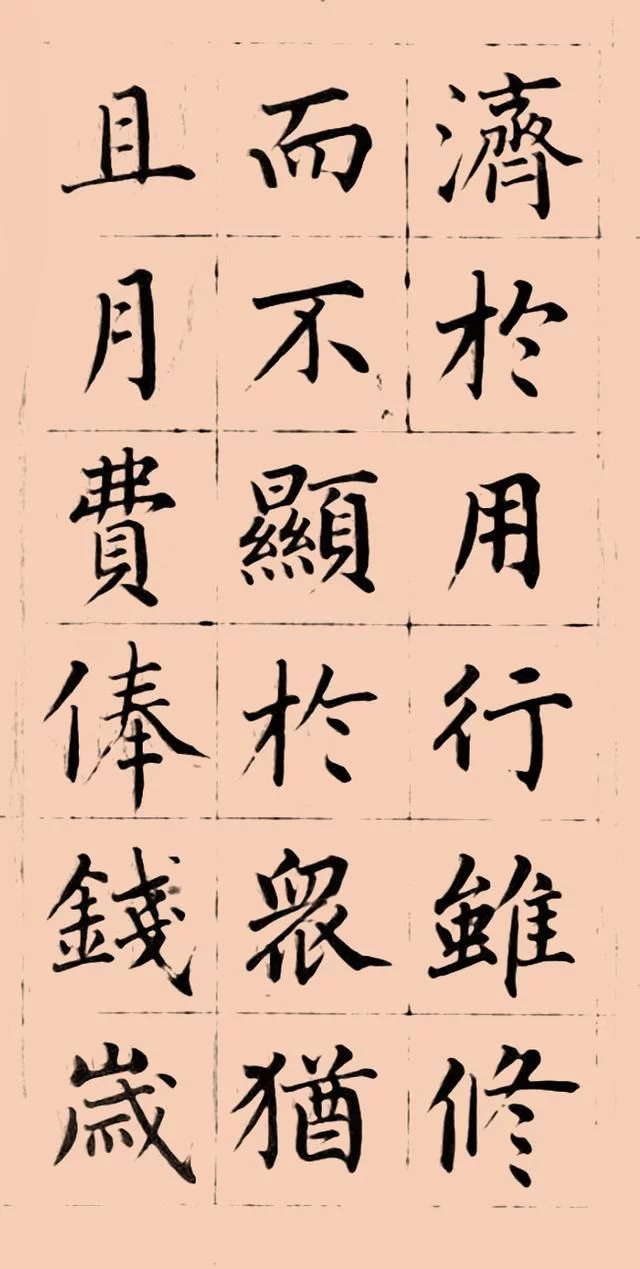 濟於用行雖修
而不顯於眾猶
且月費俸錢歲